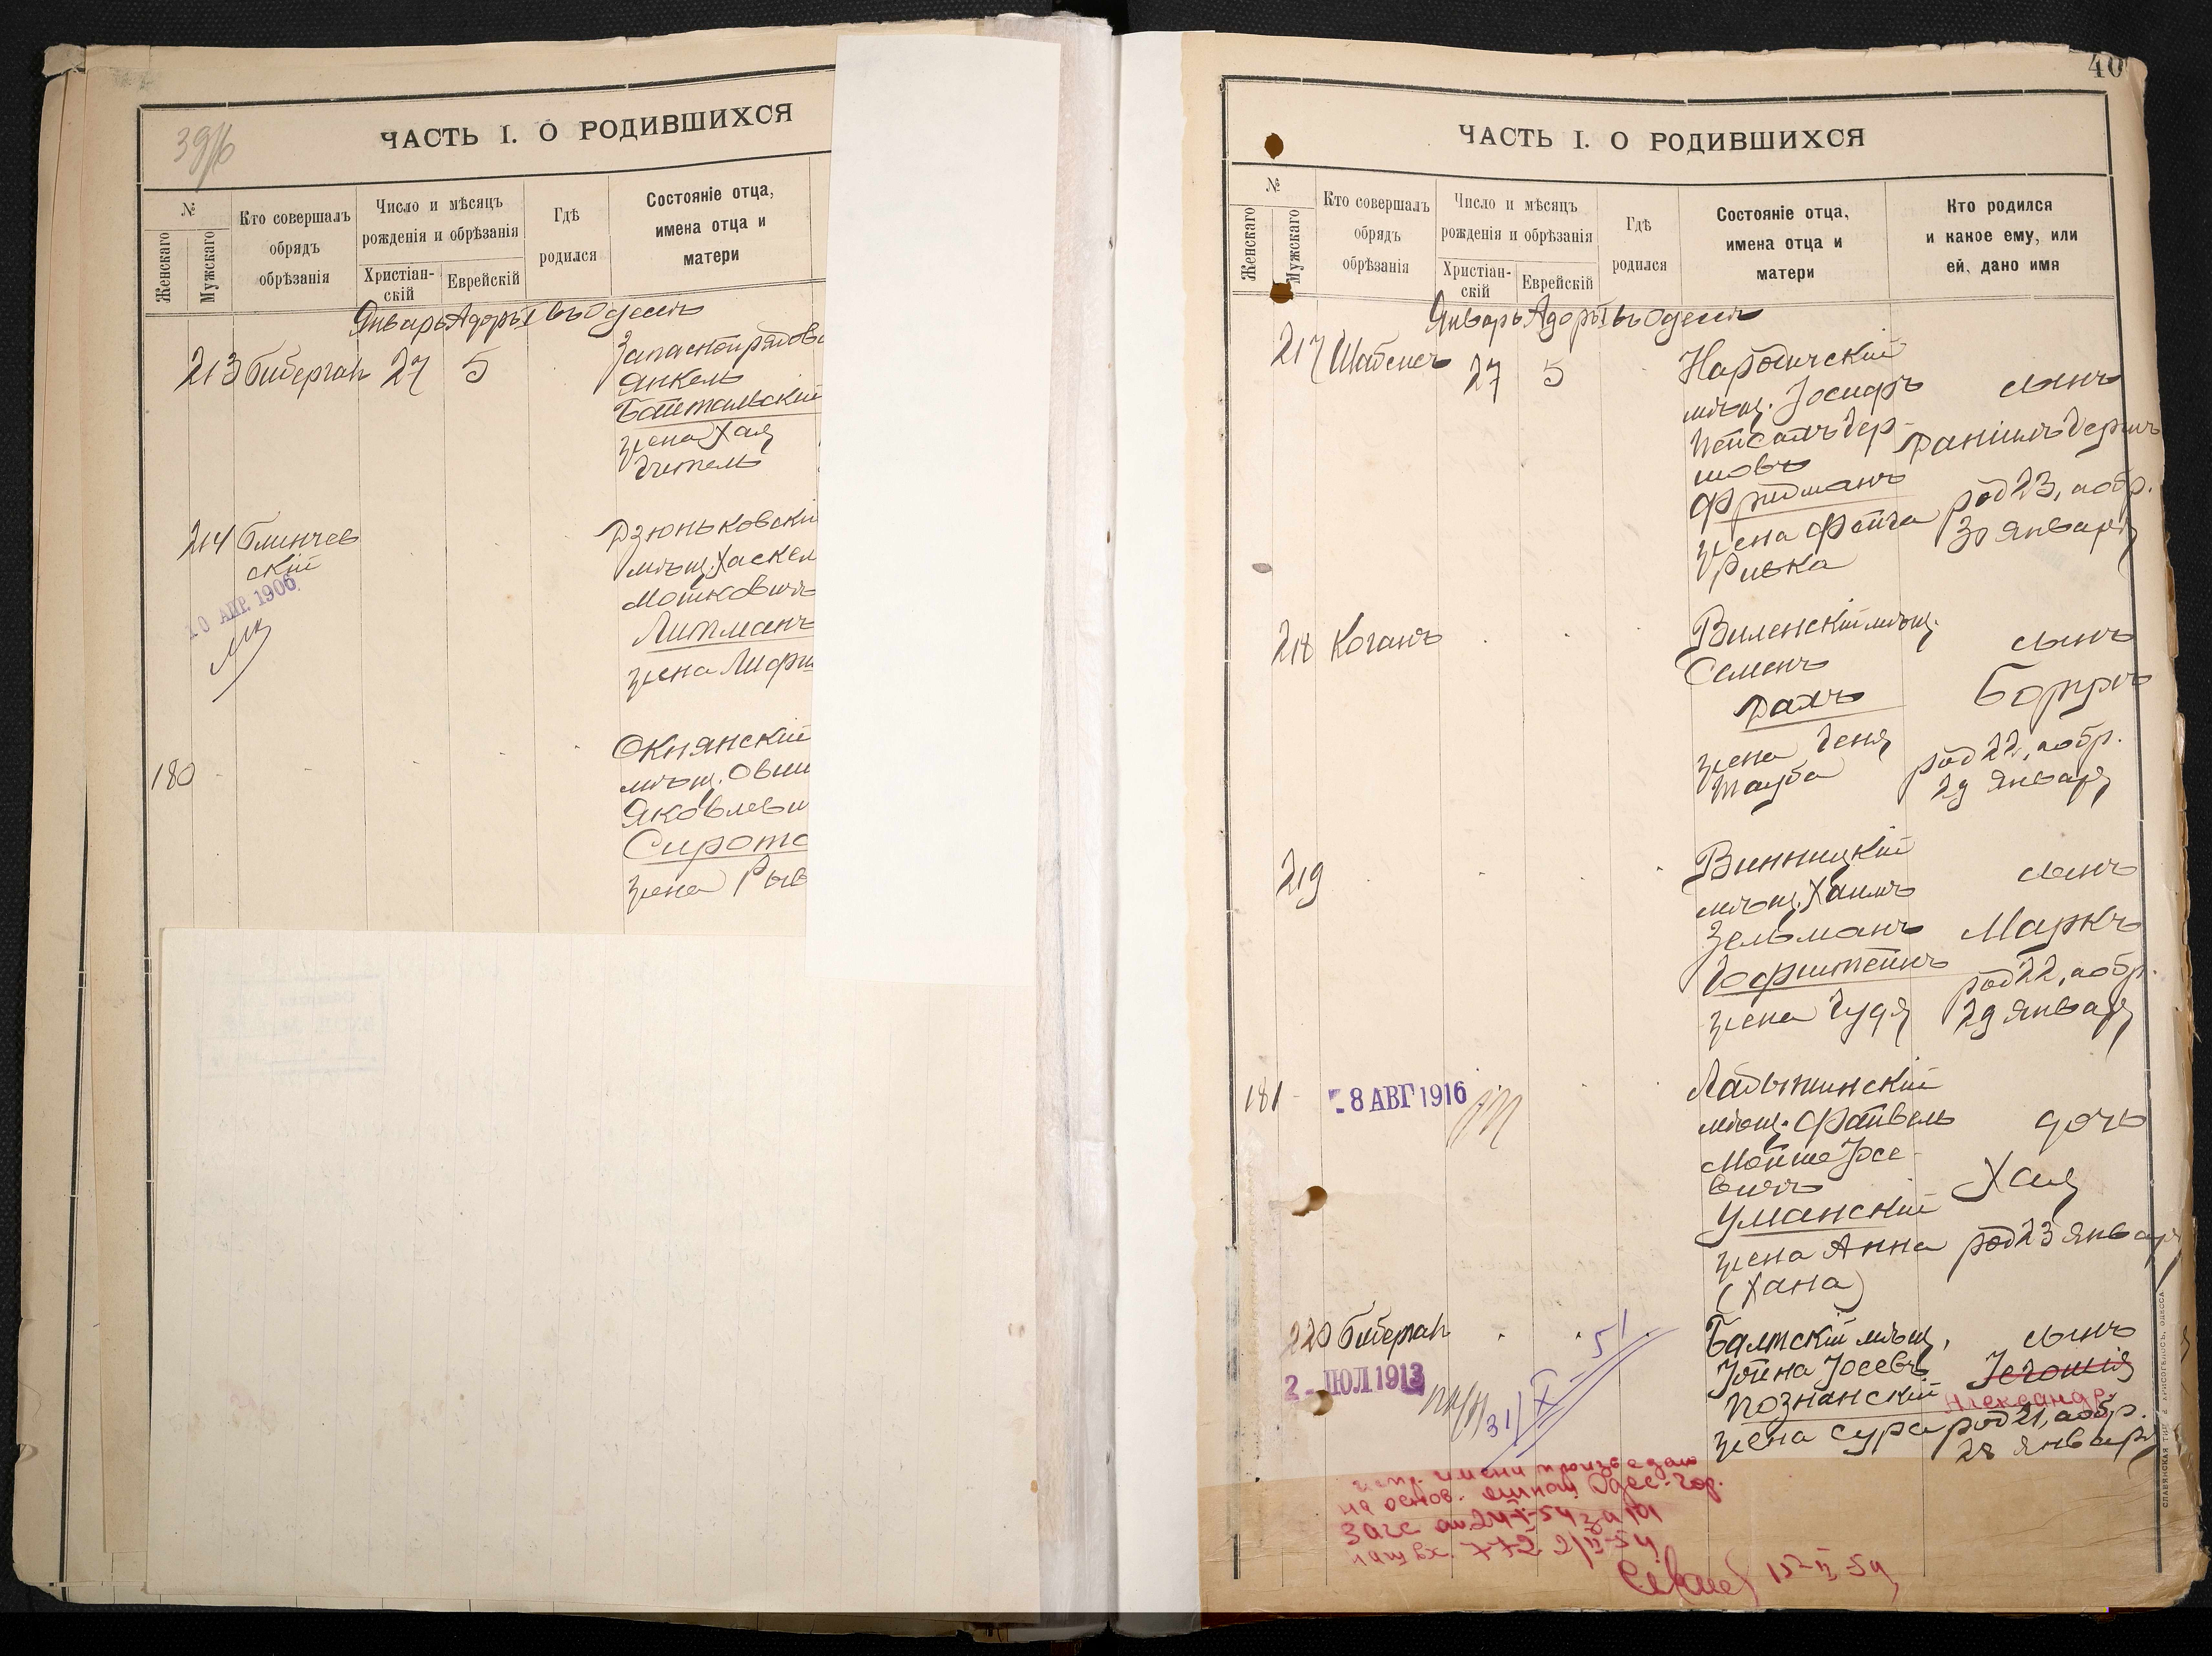 39/б
ЧАСТЬ I. О РОДИВШИХСЯ
№
Женскаго
Мужскаго
Кто совершалъ
обрядъ
обрѣзанія
Число и мѣсяцъ
рожденія и обрѣзанія
Христіан-
скій
Еврейскій
Гдѣ
родился
Состояніе отца,
имена отца и
матери
Январь Адоръ I въ Одессѣ
213 Биберган 27 5
Янкель
жена Хая
214 Блинчев
скій
10 АПР. 1906
Дзюньковскій
мѣщ. Хаскел
Мошковичъ
Литманъ
жена
180
Окнянскій
мѣщ. Овши
Яковлеви
Сирота
жена Рыв
40
ЧАСТЬ I. О РОДИВШИХСЯ
№
Женскаго
Мужскаго
Кто совершалъ
обрядъ
обрѣзанія
Число и мѣсяцъ
рожденія и обрѣзанія
Христіан-
скій
Еврейскій
Гдѣ
родился
Состояніе отца,
имена отца и
матери
Кто родился
и какое ему, или
ей, дано имя
Январь Адоръ I въ Одессѣ
217 27 5
Народичскій
мѣщ. Іосифъ
Пейсахъ Гер-
шовъ
Фридманъ
жена Фейга
Ривка
сынъ
Даніилъ Гершъ
род 23, а обр.
30 Января
218 Коганъ
Виленскій мѣщ.
Семенъ
жена Геня
Тауба
сынъ
Борухъ
род 22, а обр.
29 Января
219
Винницкій
мѣщ. Хаимъ
Зельманъ
Гофштейнъ
жена Гудя
сынъ
Маркъ
род 22, а обр.
29 Января
181
8 АВГ 1916
Ладыжинскій
мѣщ. Файвель
Мойше Іосе-
вичъ
Уманскій
жена Анна
(Хана)
дочь
Хая
род 23 Января
220 Биберган
2 - ІЮЛ 1913
31/X-51
Балтскій мѣщ.
Іойна Іосевъ
Познанскій
жена Сура
сынъ
Іегошія
Александр
род 21, а обр.
28 Января
испр. имени произведено
на основ. Одес. гор.
Загс
вх. 772 2/II-54
15-II-54
СЛАВЯНСКАЯ ТИП. Е. ХРИСОГЕЛОСЪ, ОДЕССА.